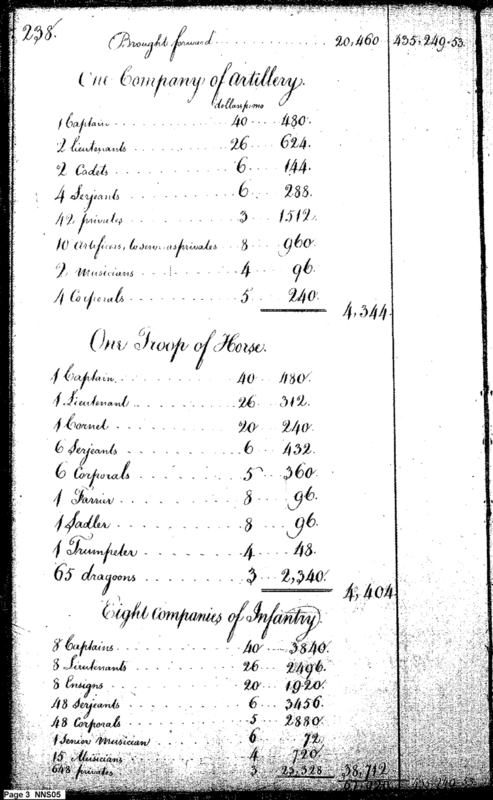 238.
Brought forward 20,460 435,249.53
One Company of Artillery.
dollars p. mo
1 Captain 40 480.
2 lieutenants 26 624.
2 Cadets 6 144.
4 Serjeants 6 288.
42 privates 3 1512.
10 artificers, to serve as privates 8 960.
2 musicians 4 96.
4 Corporals 5 240.
4,344.
One Troop of Horse.
1 Captain 40 480.
1 Lieutenant 26 312.
1 Cornet 20 240.
6 Serjeants 6 432.
6 Corporals 5 360.
1 Farrier 8 96.
1 Sadler 8 96.
1 Trumpeter 4 48.
65 dragoons 3 2,340.
4,404
Eight Companies of Infantry
8 Captains 40 3840.
8 Lieutenants 26 2496.
8 Ensigns 20 1920.
48 Serjeants 6 3456.
48 Corporals 5 2880.
1 Senior Musician 6 72.
15 Musicians 4 720.
648 privates 3 23,328 38,712
Page 3 NNS05